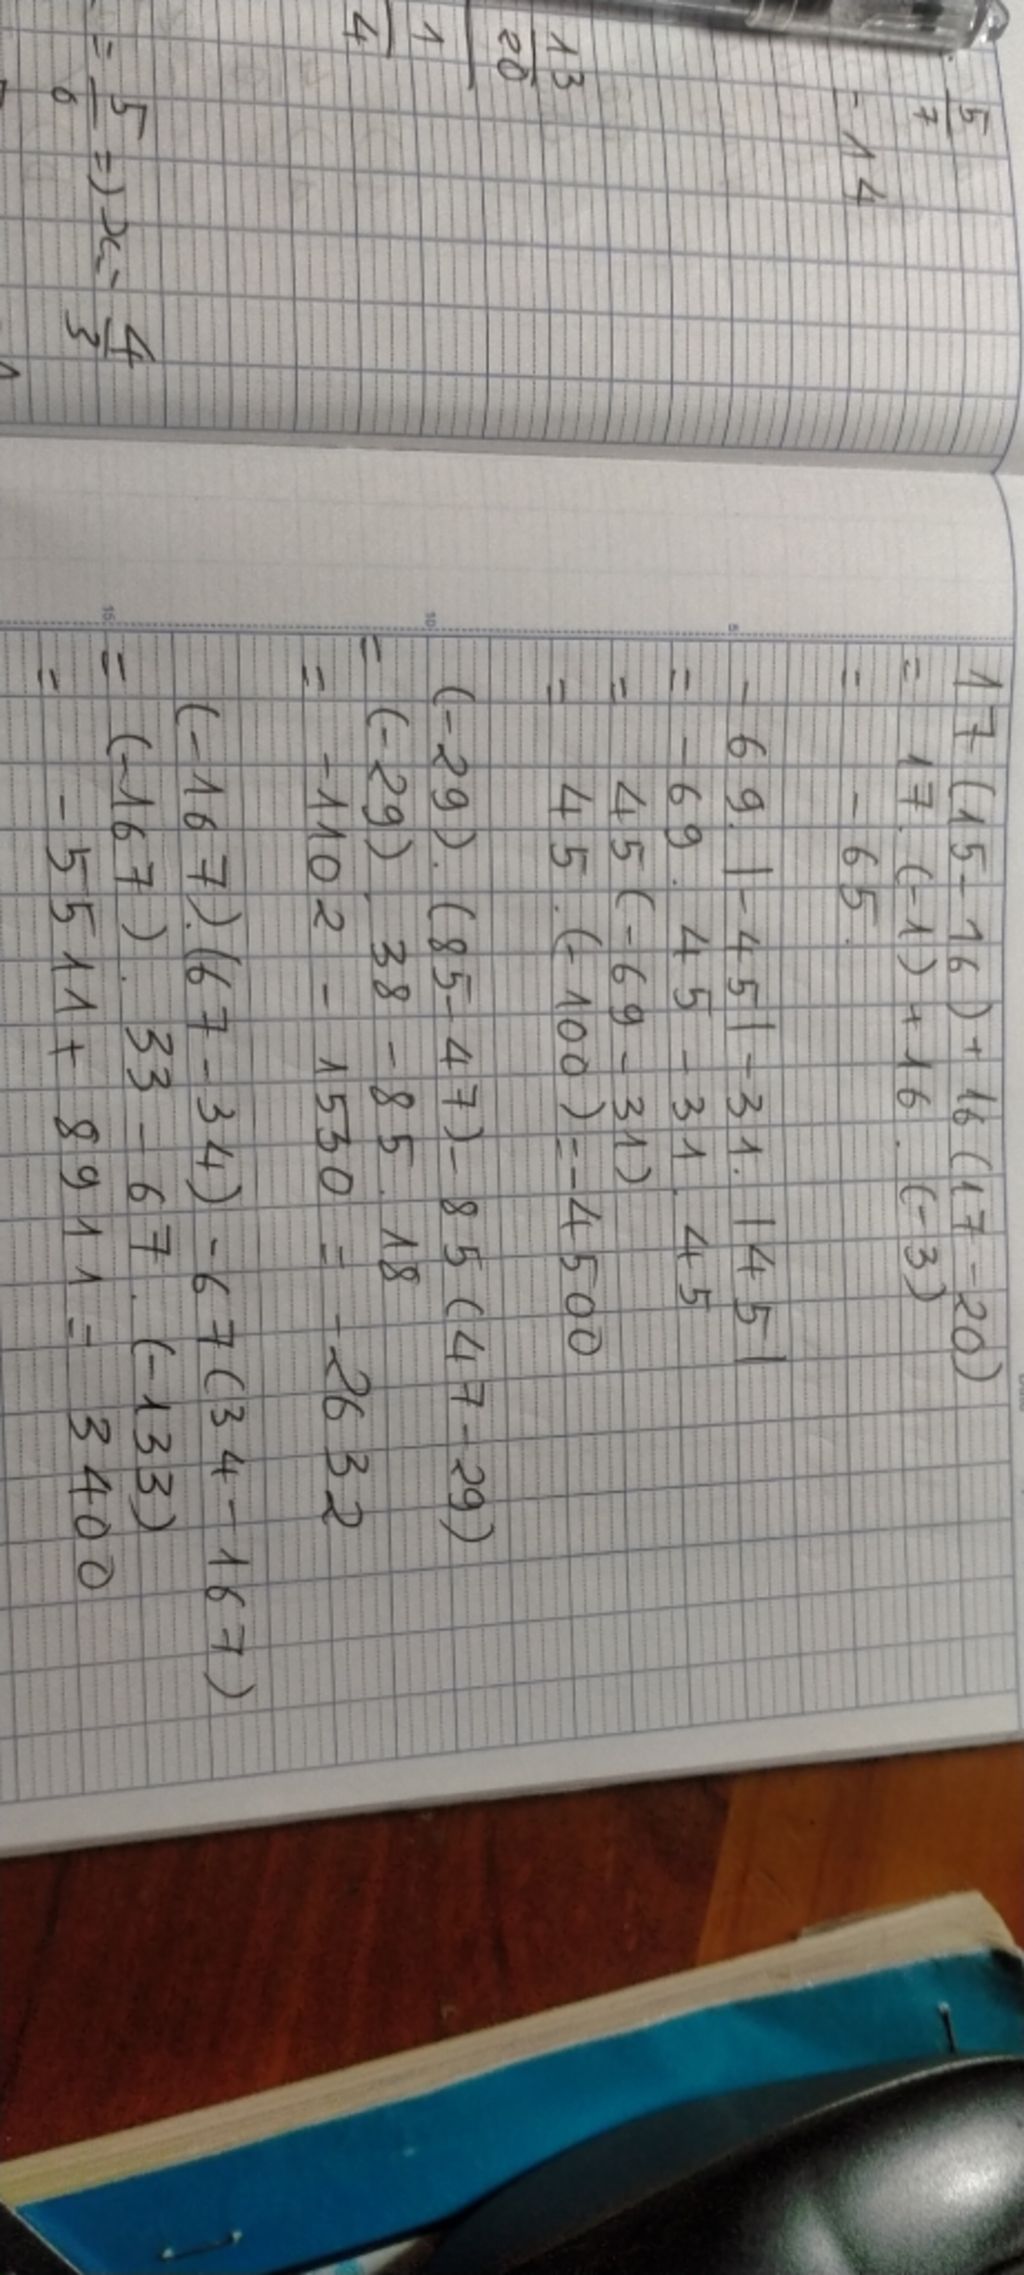 5/7
- 14
13/20
1
4
= 5/6 => x = 4/3
17(15-16)+16(17-20)
= 17.(-1)+16.(-3)
= -65.
- 69.|-45|-31.|45|
= -69.45-31.45
= 45(-69-31)
= 45.(-100)=-4500
(-29).(85-47)-85(47-29)
= (-29).38-85.18
= -1102-1530=-2632
(-167).(67-34)-67(34-167)
= (-167).33-67.(-133)
= -5511+8911=3400
5
10
15